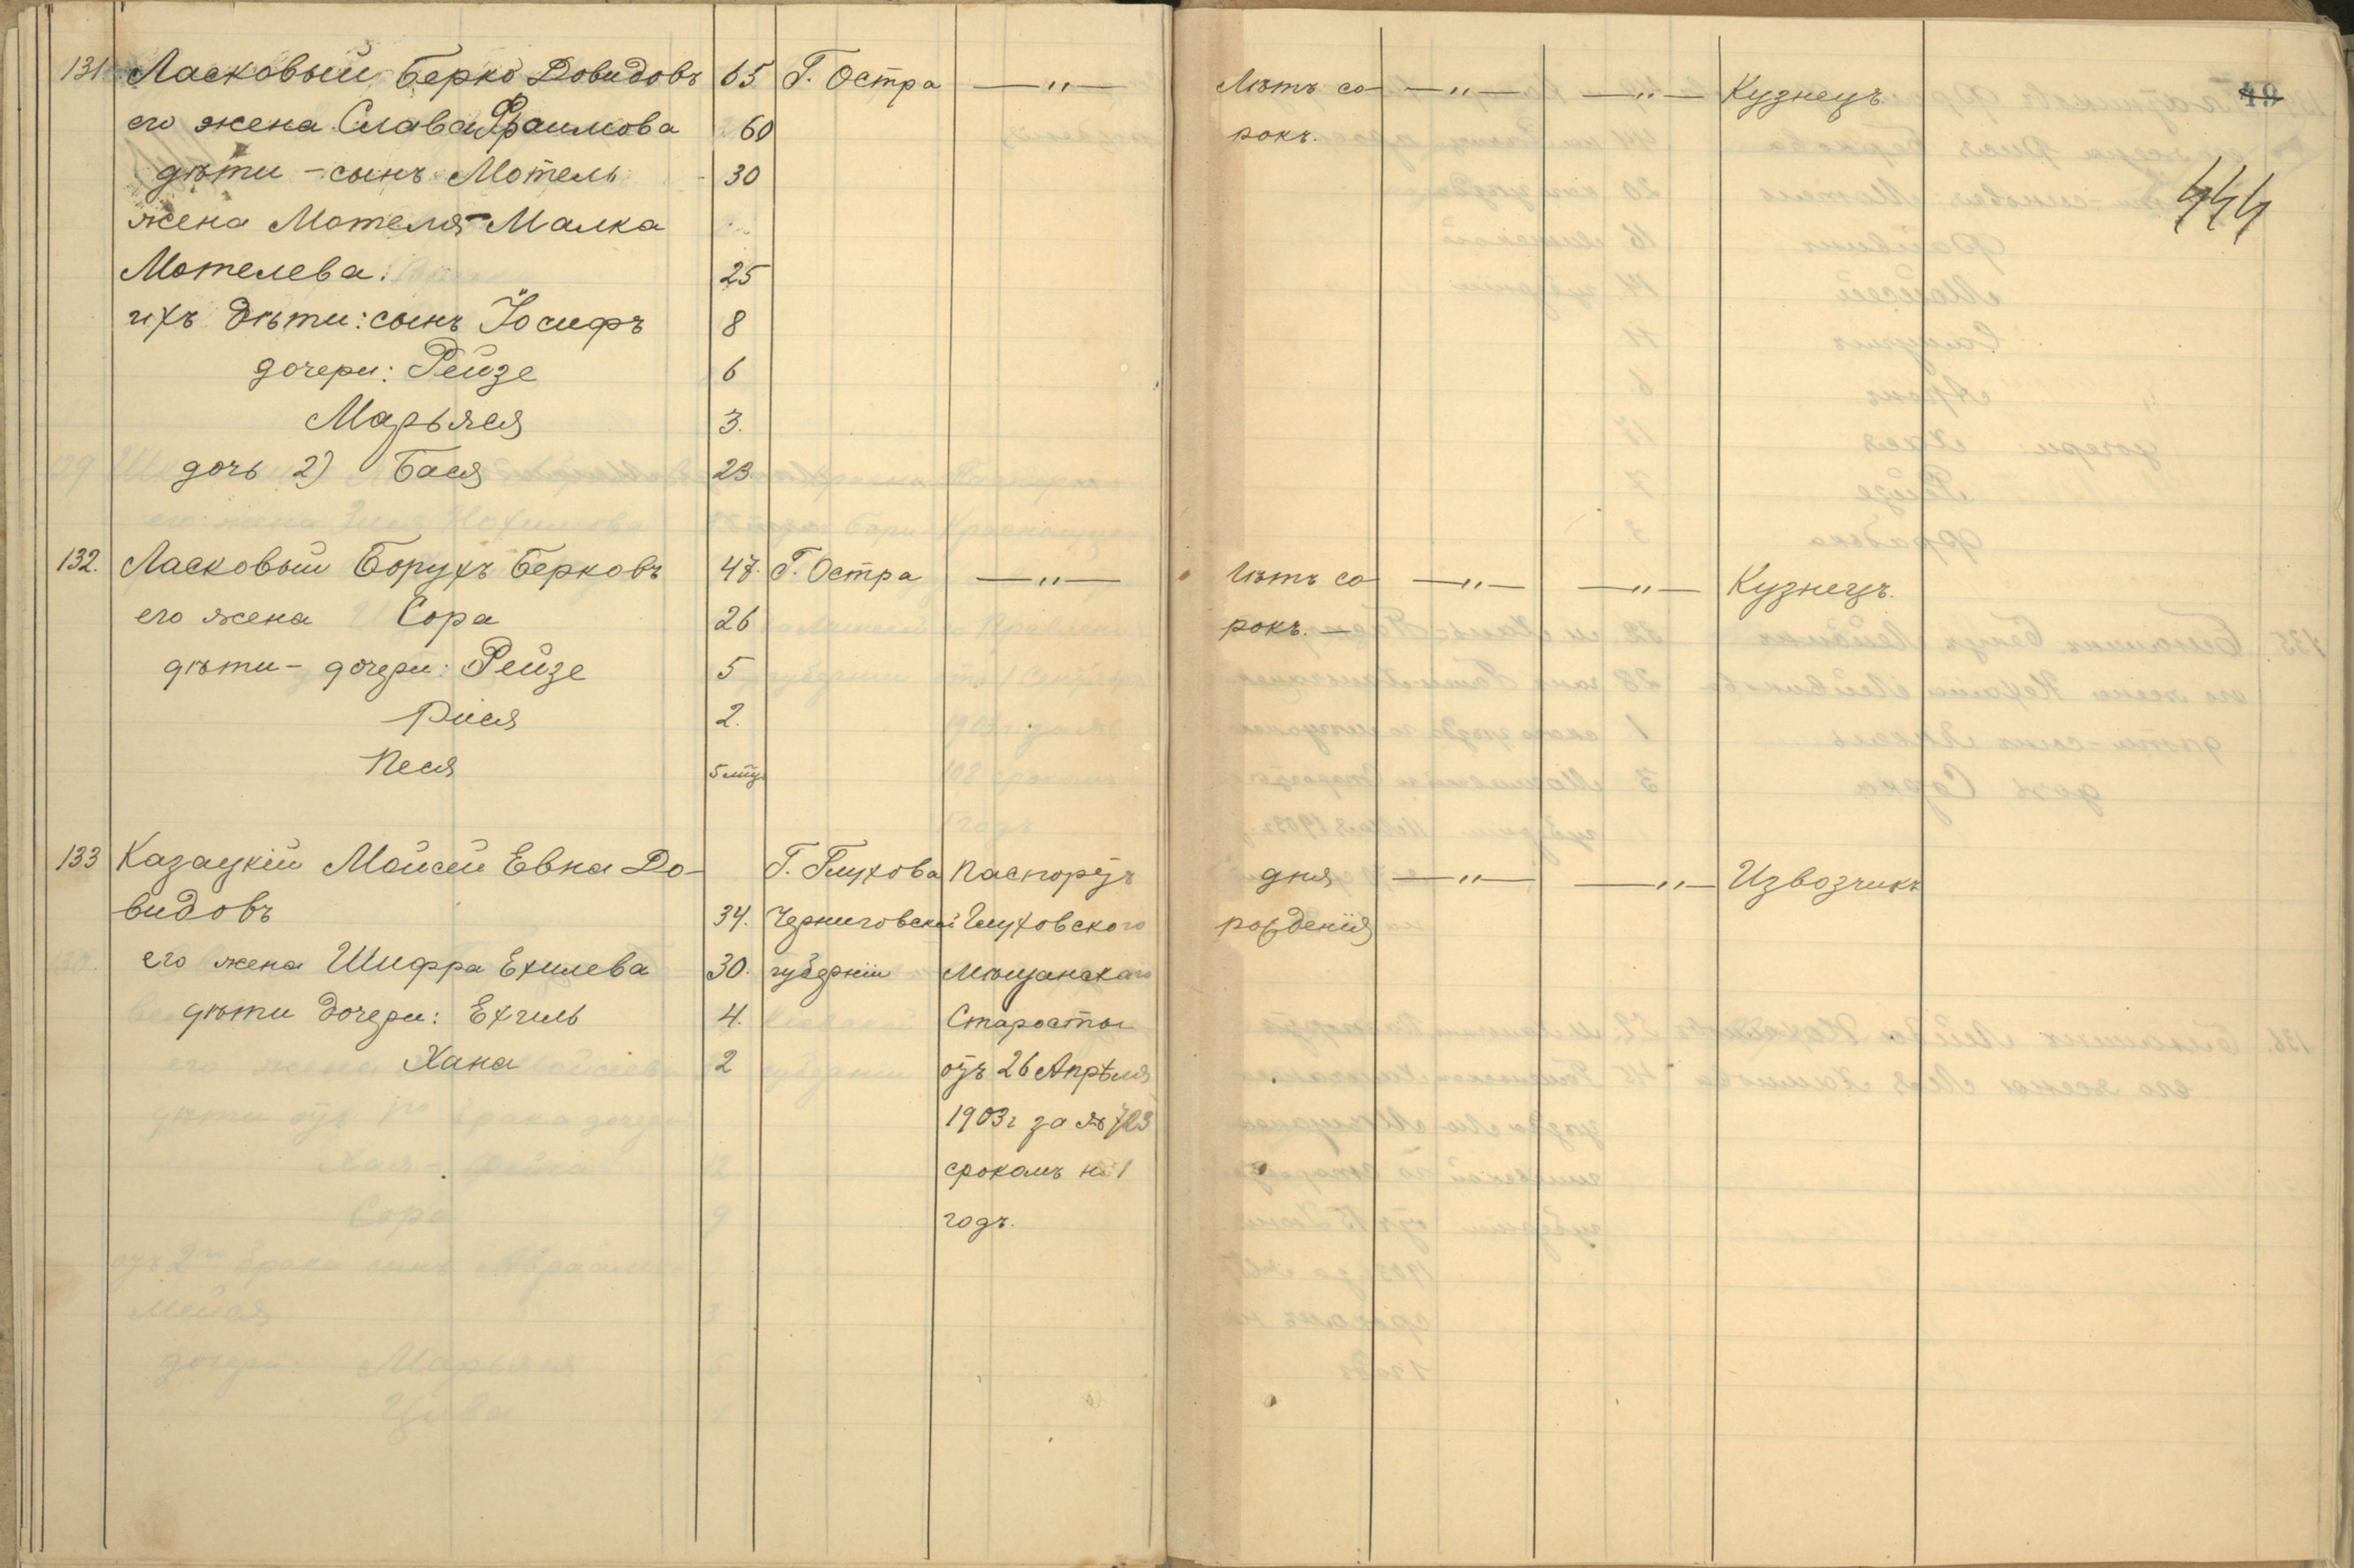 131 Ласковый Берко Довидовъ 65 Г. Остра —"— Лѣтъ со- —"— —"— Кузнецъ. 49
его жена Слава Фраимова 60 рокъ.
дѣти - сынъ Мотель 30 444
жена Мотеля - Малка
Мотелева. 25
ихъ дѣти: сынъ Іосифъ 8
дочери: Рейзе 6
Марьяся 3.
дочь 2) Бася 23.
132. Ласковый Борухъ Берковъ 47. Г. Остра —"— Лѣтъ со- —"— —"— Кузнецъ.
его жена Сора 26 рокъ. —
дѣти - дочери: Рейзе 5
Рися 2.
Песя 5 мѣц
133 Казацкій Моисей Евна До- Г. Глухова Паспортъ дня —"— —"— Извозчикъ
видовъ 34. Черниговской Глуховского рожденія
его жена Шифра Ехилева 30. губерніи Мѣщанскаго
дѣти дочери: Ехиль 4. Старосты
Хана 2 отъ 26 Апрѣля
1903 г за № 723
срокомъ на 1
годъ.